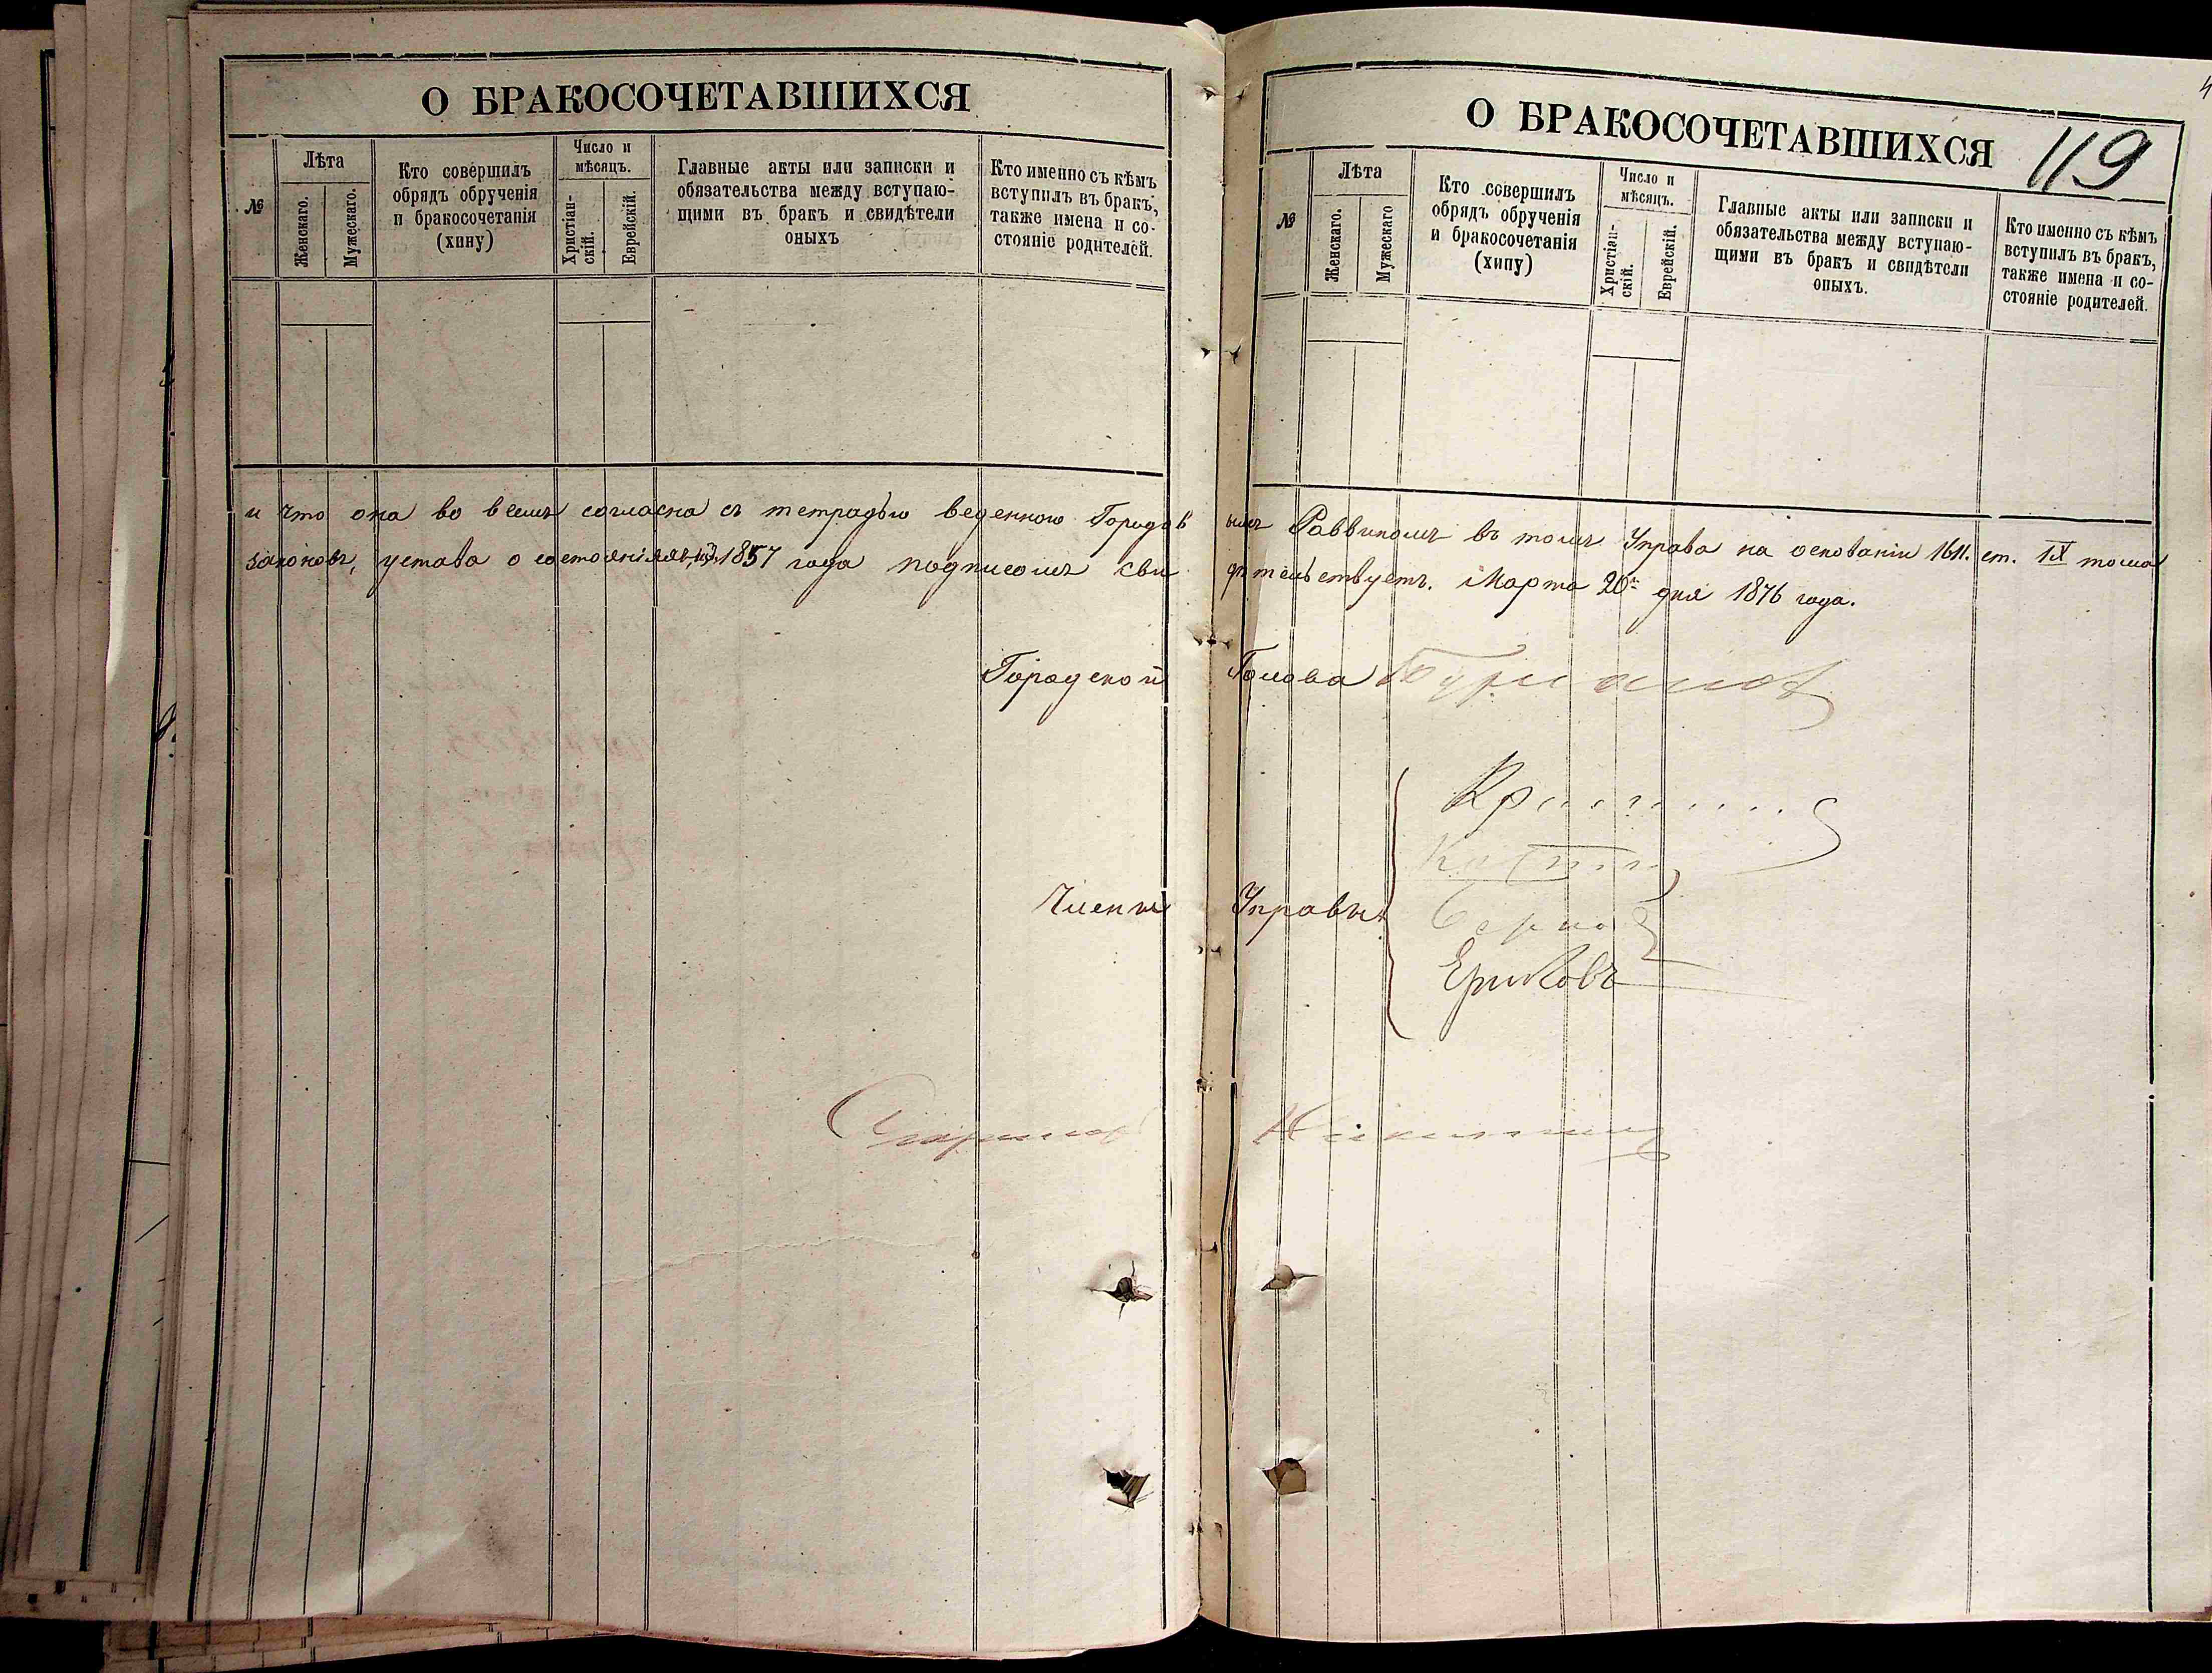 О БРАКОСОЧЕТАВШИХСЯ
№
Лѣта
Женскаго.
Мужескаго.
Кто совершилъ
обрядъ обрученія
и бракосочетанія
(хипу)
Число и
мѣсяцъ.
Христіан-
скій.
Еврейскій.
Главные акты или записки и
обязательства между вступаю-
щими въ бракъ и свидѣтели
оныхъ
Кто именно съ кѣмъ
вступилъ въ бракъ,
также имена и со-
стояніе родителей.
О БРАКОСОЧЕТАВШИХСЯ
119
№
Лѣта
Женскаго.
Мужескаго
Кто совершилъ
обрядъ обрученія
и бракосочетанія
(хипу)
Число и
мѣсяцъ.
Христіан-
скій.
Еврейскій.
Главные акты или записки и
обязательства между вступаю-
щими въ бракъ и свидѣтели
оныхъ.
Кто именно съ кѣмъ
вступилъ въ бракъ,
также имена и со-
стояніе родителей.
и что она во всемъ согласна съ тетрадью веденною Городовымъ Раввиномъ въ томъ Управа на основаніи 1611. ст. IX тома
законовъ, устава о состояніяхъ, изд. 1857 года подписомъ свидѣтельствуетъ. Марта 20го дня 1876 года.
Городской Голова
Члены Управы
Ериковъ